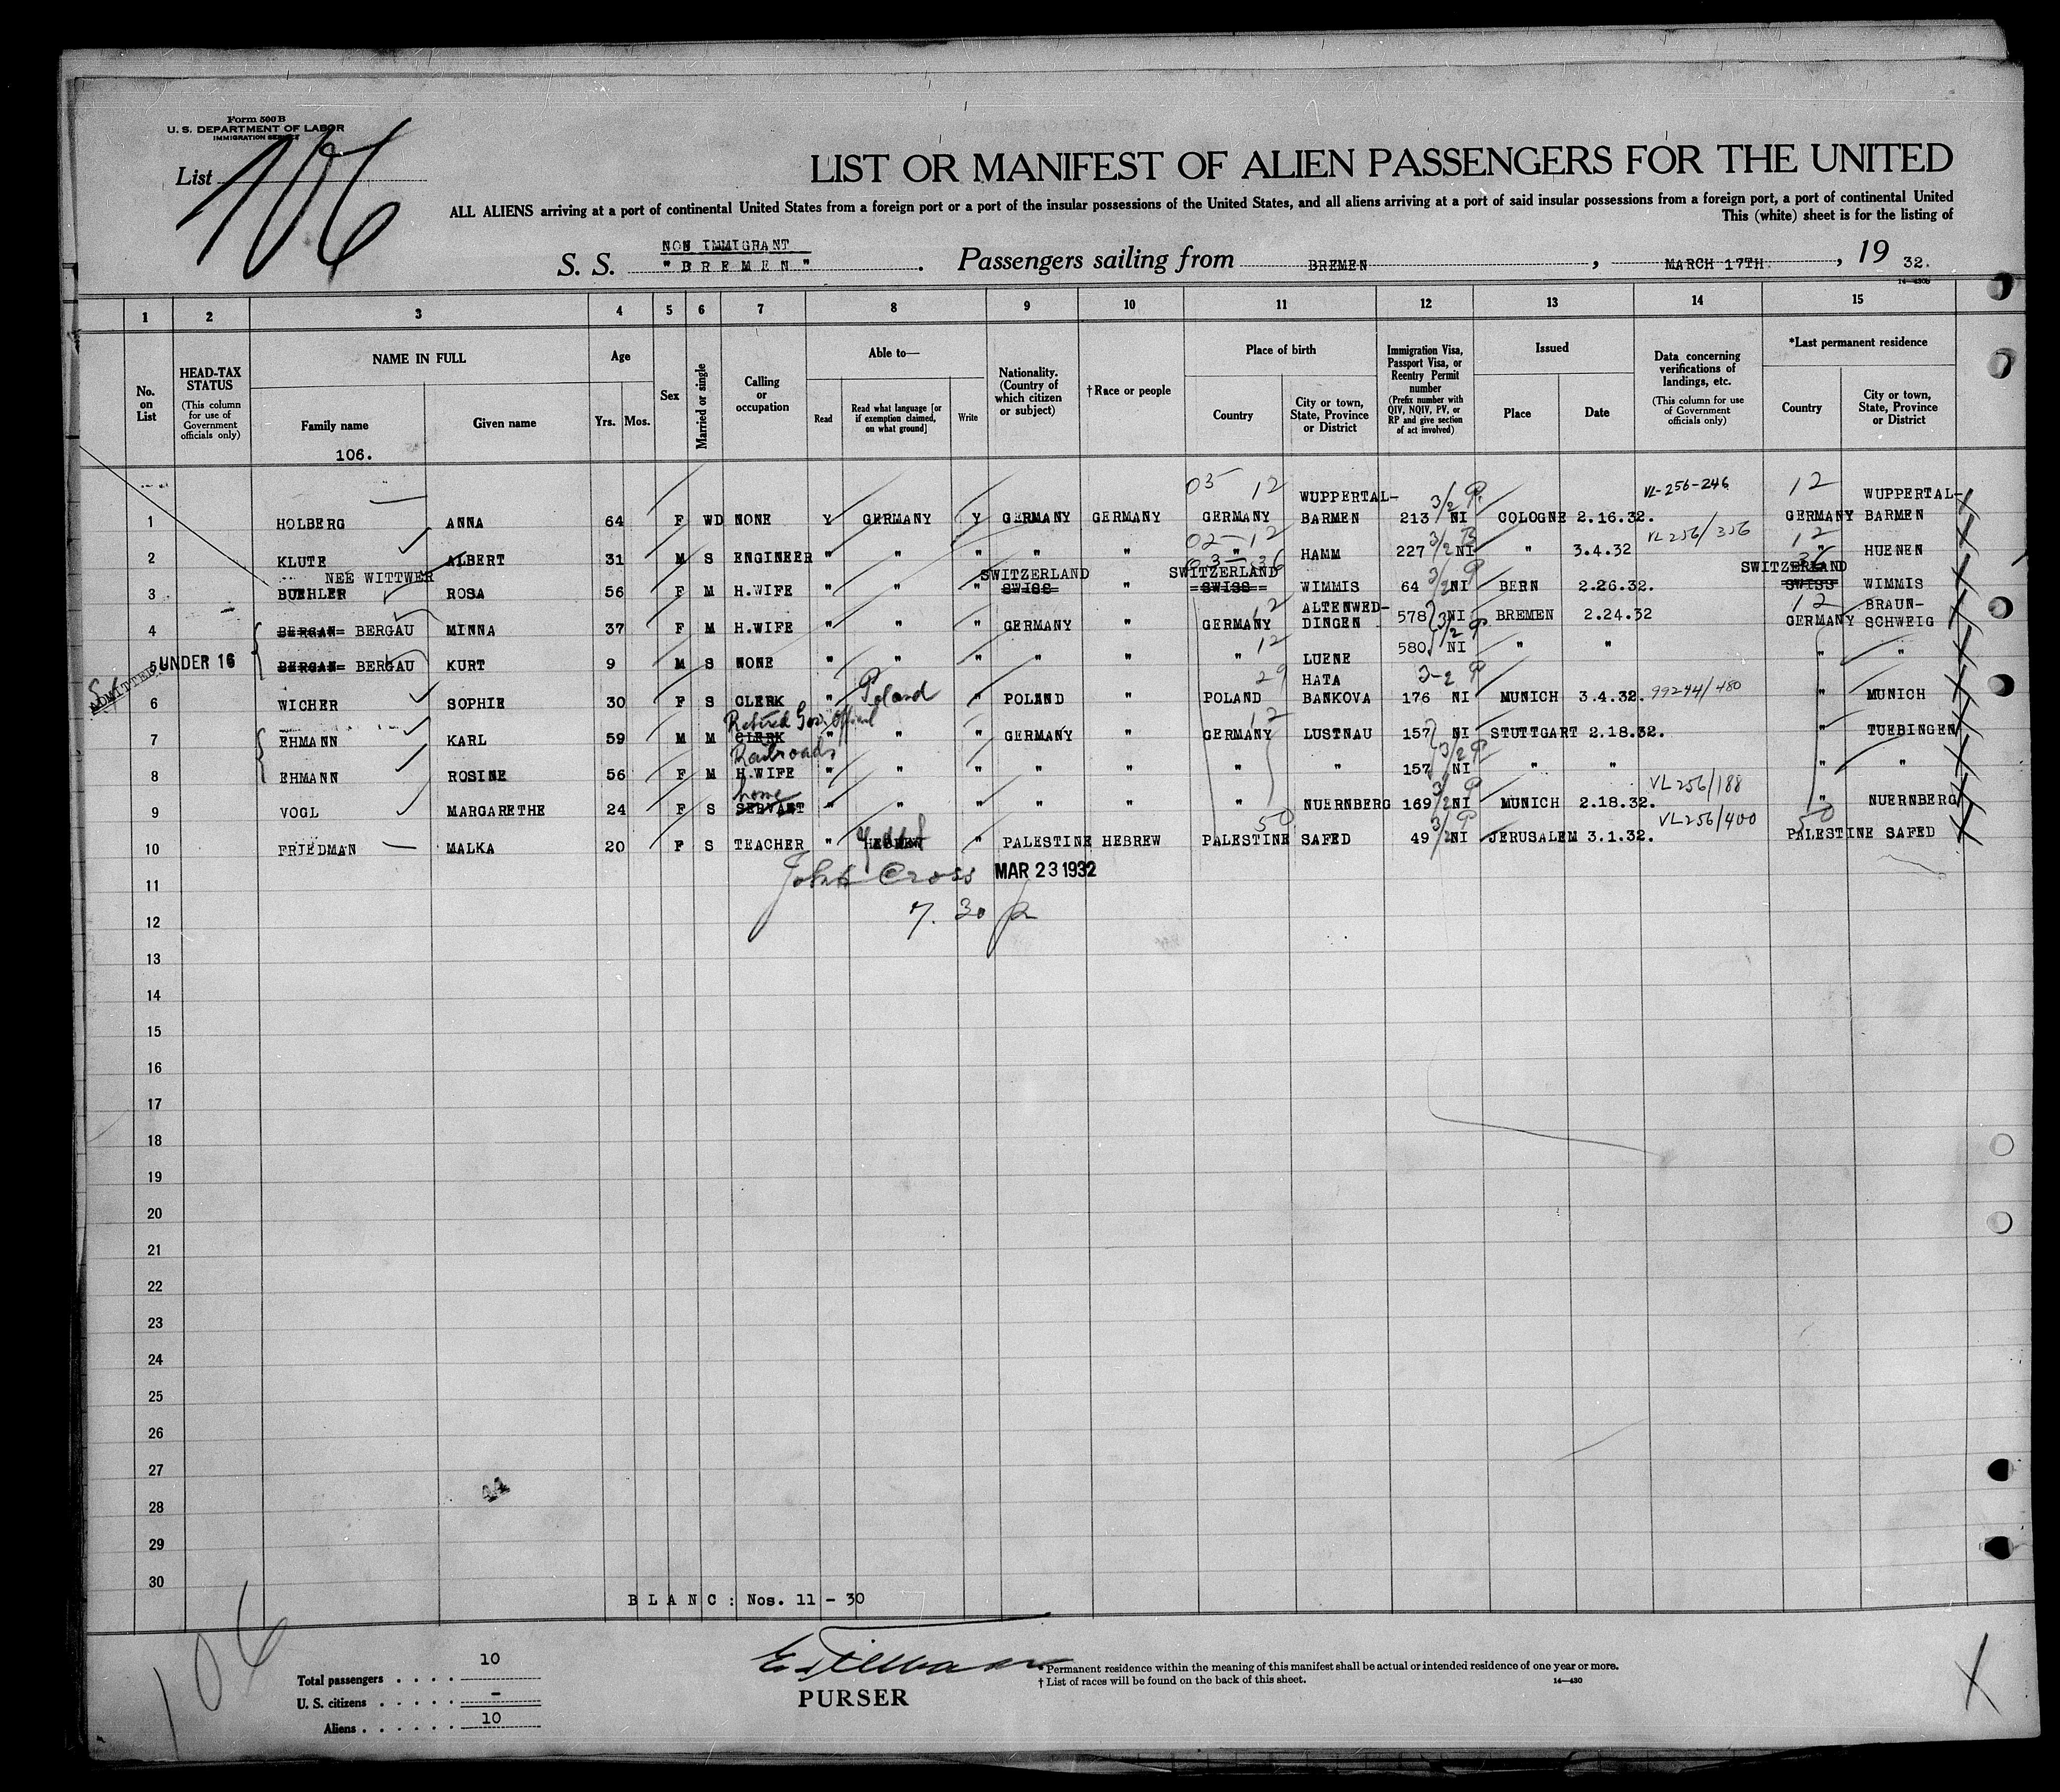 Form 500 B
U. S. DEPARTMENT OF LABOR
IMMIGRATION SERVICE
List 106
LIST OR MANIFEST OF ALIEN PASSENGERS FOR THE UNITED
ALL ALIENS arriving at a port of continental United States from a foreign port or a port of the insular possessions of the United States, and all aliens arriving at a port of said insular possessions from a foreign port, a port of continental United
This (white) sheet is for the listing of
NON IMMIGRANT
S. S. "BREMEN". Passengers sailing from BREMEN, MARCH 17TH, 19 32.
14—430b
1 2 3 4 5 6 7 8 9 10 11 12 13 14 15
No. on List
HEAD-TAX STATUS (This column for use of Government officials only)
NAME IN FULL Family name Given name
Age Yrs. Mos.
Sex
Married or single
Calling or occupation
Able to— Read Read what language [or if exemption claimed, on what ground] Write
Nationality. (Country of which citizen or subject)
† Race or people
Place of birth Country City or town, State, Province or District
Immigration Visa, Passport Visa, or Reentry Permit number (Prefix number with QIV, NQIV, PV, or RP and give section of act involved)
Issued Place Date
Data concerning verifications of landings, etc. (This column for use of Government officials only)
*Last permanent residence Country City or town, State, Province or District
106.
05 12 WUPPERTAL- 3/2 P. VL-256-246 12 WUPPERTAL-
1 HOLBERG ANNA 64 F WD NONE Y GERMANY Y GERMANY GERMANY GERMANY BARMEN 213 NI COLOGNE 2.16.32. GERMANY BARMEN
02-12 3/2 VL256/356 12
2 KLUTE ALBERT 31 M S ENGINEER " " " " " " HAMM 227 NI " 3.4.32 " HUENEN
NEE WITTWER SWITZERLAND 03-36 SWITZERLAND 3/2 P 36 SWITZERLAND
3 BUEHLER ROSA 56 F M H.WIFE " " " SWISS " SWISS WIMMIS 64 NI BERN 2.26.32. SWISS WIMMIS
12 ALTENWED- 12 BRAUN-
4 BERGAN- BERGAU MINNA 37 F M H.WIFE " " " GERMANY " GERMANY DINGEN 578 NI BREMEN 2.24.32 GERMANY SCHWEIG
12 3/2 P
ADMITTED UNDER 16
5 BERGAN- BERGAU KURT 9 M S NONE " " " " " " LUENE 580 NI " " " "
Poland 29 HATA 3-2 P
6 WICHER SOPHIE 30 F S CLERK " " POLAND " POLAND BANKOVA 176 NI MUNICH 3.4.32. 99244/480 " MUNICH
Retired Gov. Official 12
7 EHMANN KARL 59 M M CLERK " " " GERMANY " GERMANY LUSTNAU 157 NI STUTTGART 2.18.32. " TUEBINGEN
Railroads 3/2 P
8 EHMANN ROSINE 56 F M H.WIFE " " " " " " " 157 NI " " " "
home 3/2 P VL256/188
9 VOGL MARGARETHE 24 F S SERVANT " " " " " " NUERNBERG 169 NI MUNICH 2.18.32. " NUERNBERG
50 3/2 P VL256/400 50
10 FRIEDMAN MALKA 20 F S TEACHER " HEBREW " PALESTINE HEBREW PALESTINE SAFED 49 NI JERUSALEM 3.1.32. PALESTINE SAFED
11 John Cross MAR 23 1932
12 7.30 p
13
14
15
16
17
18
19
20
21
22
23
24
25
26
27
28
29
30
BLANC: Nos. 11 - 30
106
Total passengers . . . . 10
U. S. citizens . . . . . -
Aliens . . . . . . 10
PURSER
* Permanent residence within the meaning of this manifest shall be actual or intended residence of one year or more.
† List of races will be found on the back of this sheet.
14—430